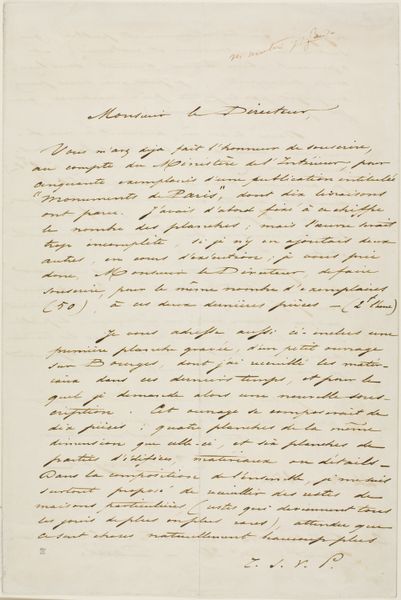 Monsieur le Directeur,
Vous m'avez déja fait l'honneur de souscrire,
au compte du Ministère de l'Intérieur, pour
cinquante exemplaires d'une publication intitulée
"Monuments de Paris", dont dix livraisons
ont paru. J'avais d'abord fixé à ce chiffre
le nombre des planches; mais l'œuvre serait
trop incomplète, si je n'y en ajoutais deux
autres, en cours d'exécution; je vous prie
donc, Monsieur le Directeur, de faire
souscrire, pour le même nombre d'exemplaires
(50), à ces deux dernières pièces — (2f l'une)
Je vous adresse aussi ci-inclus une
première planche gravée, d'un petit ouvrage
sur Bourges, dont j'ai recueilli les maté-
riaux dans ces derniers temps, et pour le
quel je demande alors une nouvelle sous-
cription. Cet ouvrage se composerait de
dix pièces: quatre planches de la même
dimension que celle-ci, et six planches de
parties d'édifices, matériaux ou détails —
Dans la composition de l'ensemble, je me suis
surtout proposé de recueillir des restes de
maisons particulières (restes qui deviennent tous
les jours de plus en plus rares), attendu que
ce sont choses naturellement beaucoup plus
T. S. V. P.